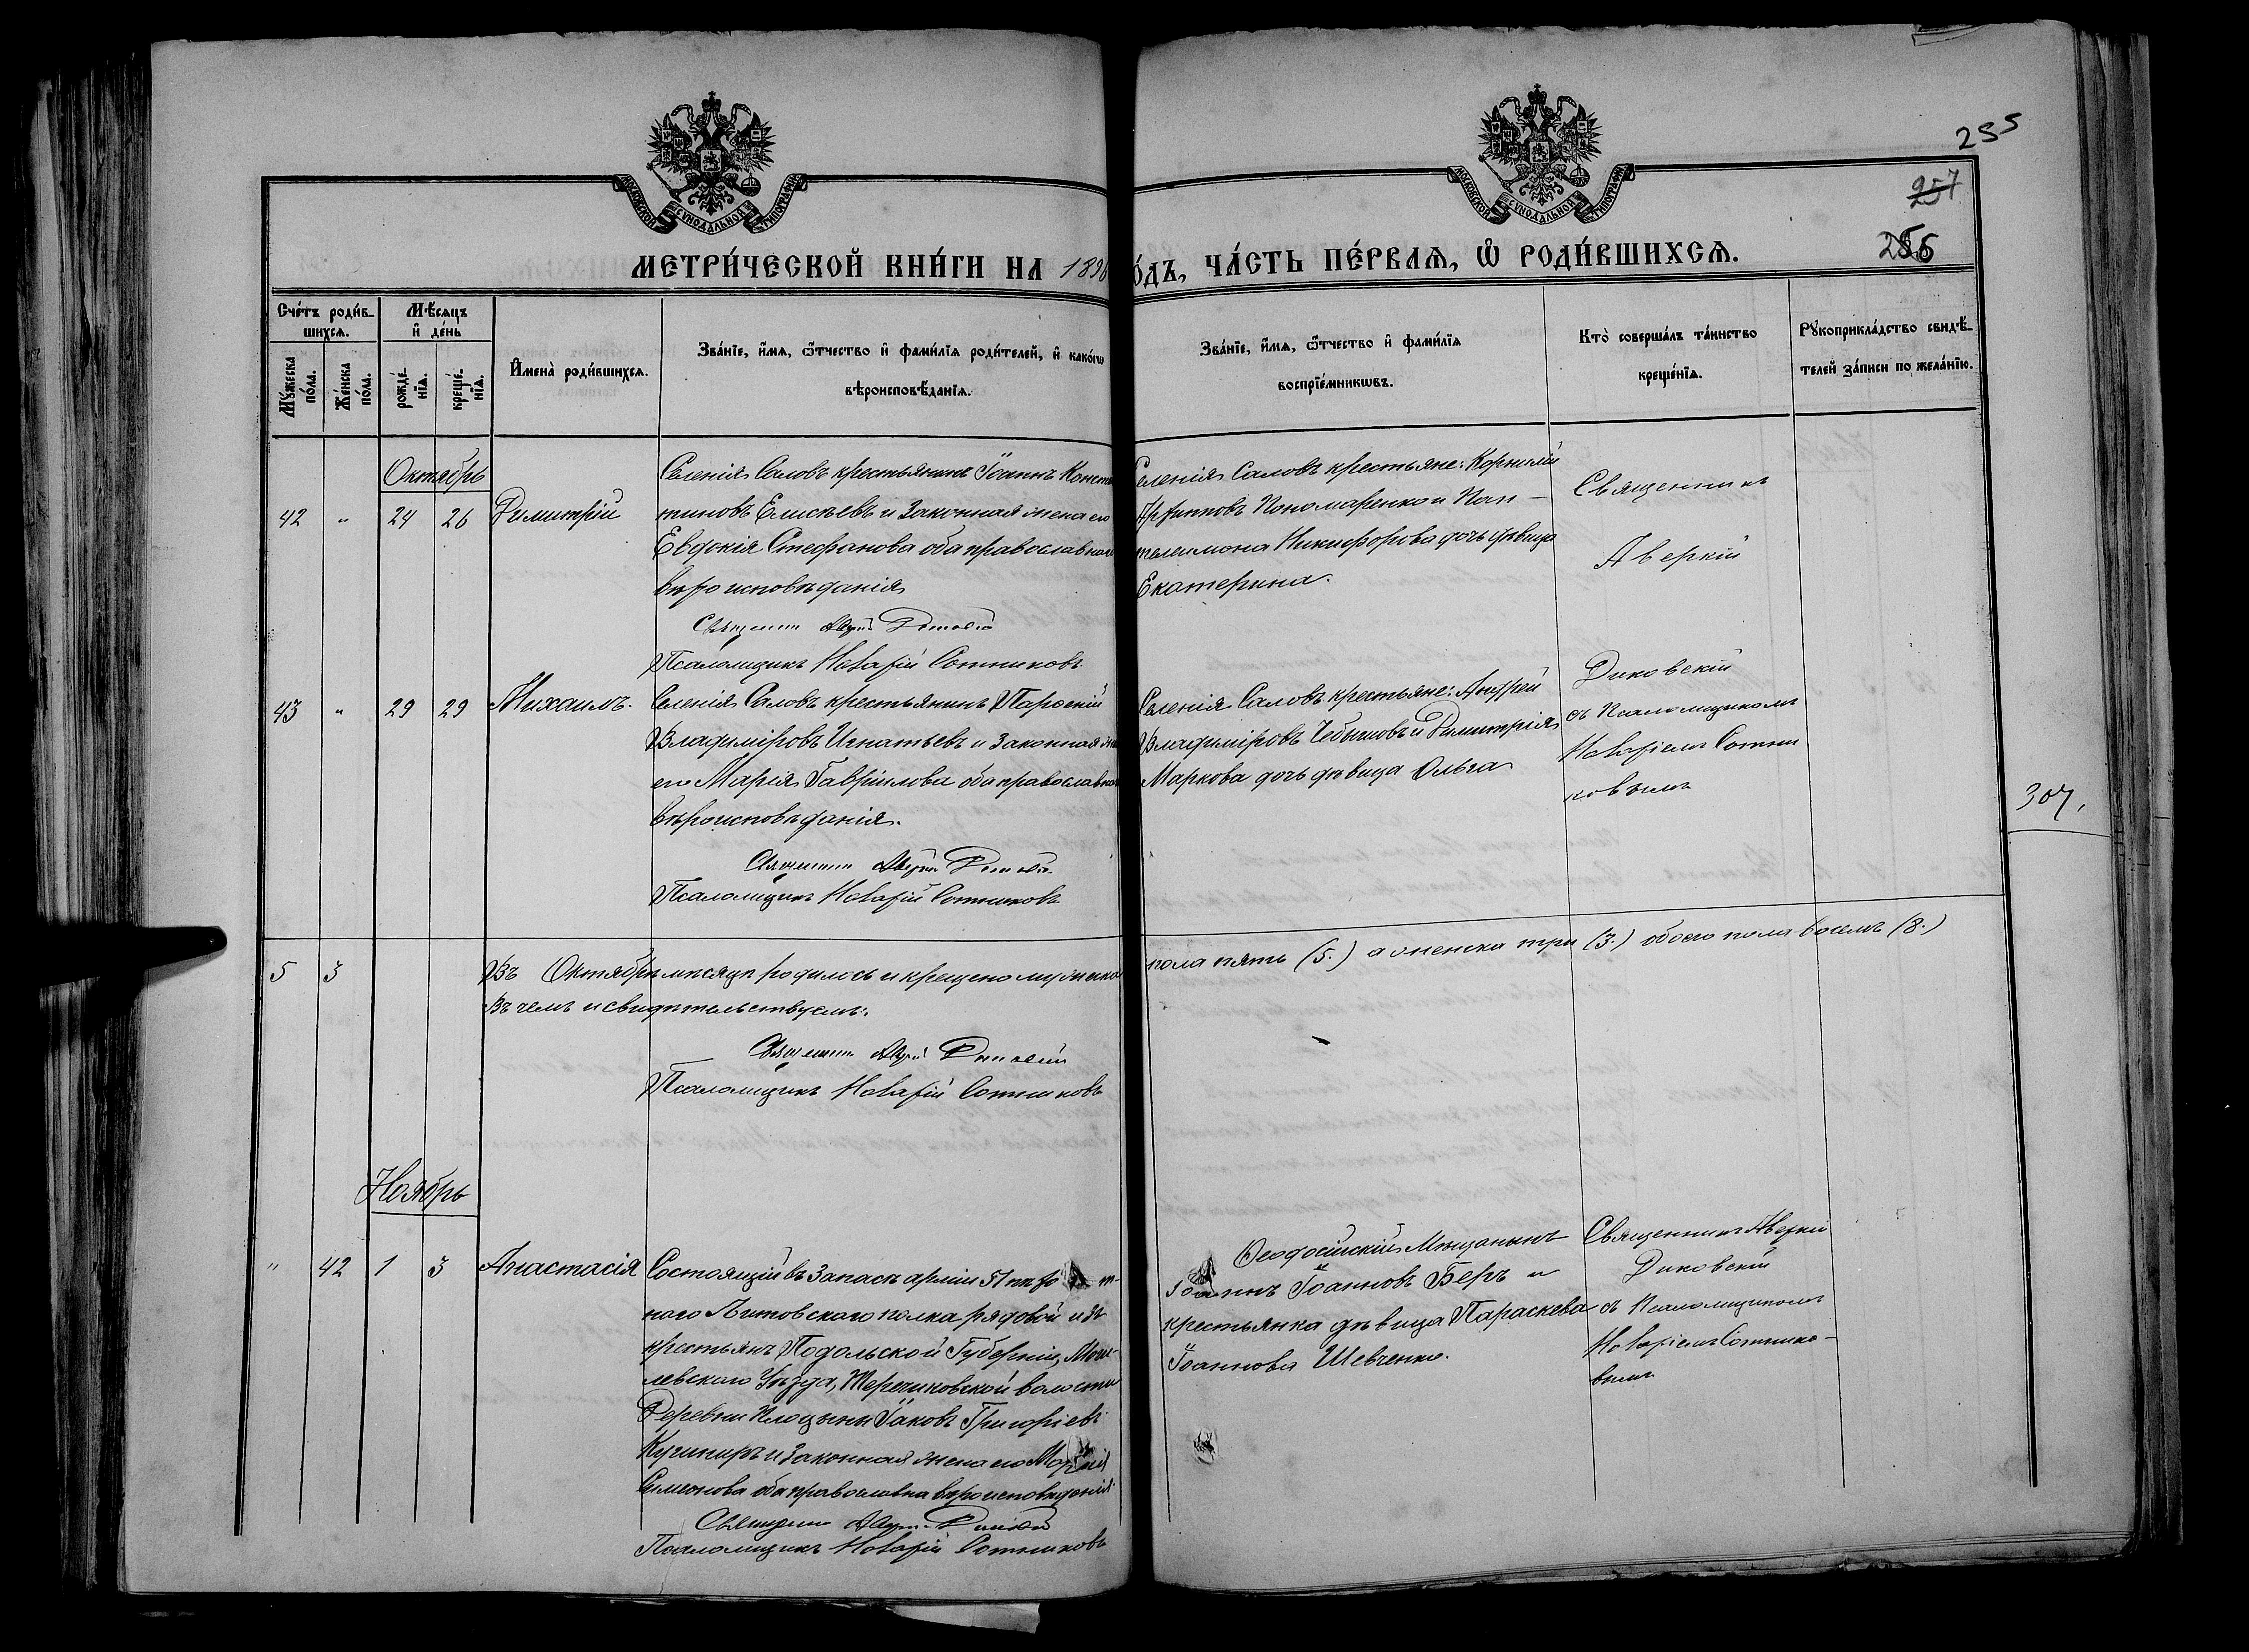 255
257
256
МОСКОВСКОЙ СѴНОДАЛЬНОЙ ТИПОГРАФІИ
МОСКОВСКОЙ СѴНОДАЛЬНОЙ ТИПОГРАФІИ
МЕТРИ́ЧЕСКОЙ КНИ́ГИ НА 1898
ОДЪ, ЧА́СТЬ ПЕ́РВАѦ, Ѡ҆ РОДИ́ВШИХСѦ.
Сче́тъ роди́в-
шихсѧ.
Мꙋ́жеска по́ла.
Же́нска по́ла.
Мѣ́сѧцъ
и҆ де́нь
рожде́-нїѧ.
креще́-нїѧ.
И҆мена̀ роди́вшихсѧ.
Зва́нїе, и҆́мѧ, ѻ҆́тчество и҆ фами́лїѧ роди́телей, и҆ како́гѡ
вѣроисповѣ́данїѧ.
Зва́нїе, и҆́мѧ, ѻ҆́тчество и҆ фами́лїѧ
воспрїе́мникѡвъ.
Кто̀ соверша́лъ та́инство
креще́нїѧ.
Рꙋкоприкла́дство свидѣ́-
телей за́писи по жела́нїю.
Октябрь
42 " 24 26 Димитрій
Селенія Саловъ крестьянинъ Іоаннъ Конста
тиновъ Елисѣевъ и законная жена его
Евдокія Стефанова оба православнаго
вѣроисповѣданія
Священникъ Аверкій Диковскій
Псаломщикъ Назарій Сотниковъ
Селенія Саловъ крестьяне: Корнилій
Пономаренко и Пан-
телеимона Никифорова дочь дѣвица
Екатерина.
Священникъ
Аверкій
Диковскій
съ Псаломщикомъ
Назаріемъ Сотни
ковымъ
43 " 29 29 Михаилъ.
Селенія Саловъ крестьянинъ Парфеній
Владиміровъ Игнатьевъ и законная жена
его Марія Гавріилова оба православнаго
вѣроисповѣданія.
Священникъ Аверкій Диковскій
Псаломщикъ Назарій Сотниковъ
Селенія Саловъ крестьяне: Андрей
Владиміровъ Чебышовъ и Димитрія
Маркова дочь дѣвица Ольга
307.
5 3 Въ Октябрѣ мѣсяцѣ родилось и крещено мужеска пола пять (5.) а женска три (3.) обоего пола восемь (8.)
Въ чемъ и свидѣтельствуемъ:
Священникъ Аверкій Диковскій
Псаломщикъ Назарій Сотниковъ
Ноябрь
" 42 1 3 Анастасія
Состоящій въ запасѣ арміи 51 пѣхот-
наго Литовскаго полка рядовой изъ
крестьянъ Подольской Губерніи, Моги-
левскаго Уѣзда, волости
Деревни Іаковъ Григоріевъ
Кушниръ и законная жена его Марія
Симеонова оба православна вѣроисповѣданія
Священникъ Аверкій Диковскій
Псаломщикъ Назарій Сотниковъ
Ѳеодосійскій Мѣщанинъ
Іоаннъ Іоанновъ Беръ и
крестьянка дѣвица Параскева
Іоаннова Шевченко.
Священникъ Аверкій
Диковскій
съ Псаломщикомъ
Назаріемъ Сотнико-
вымъ